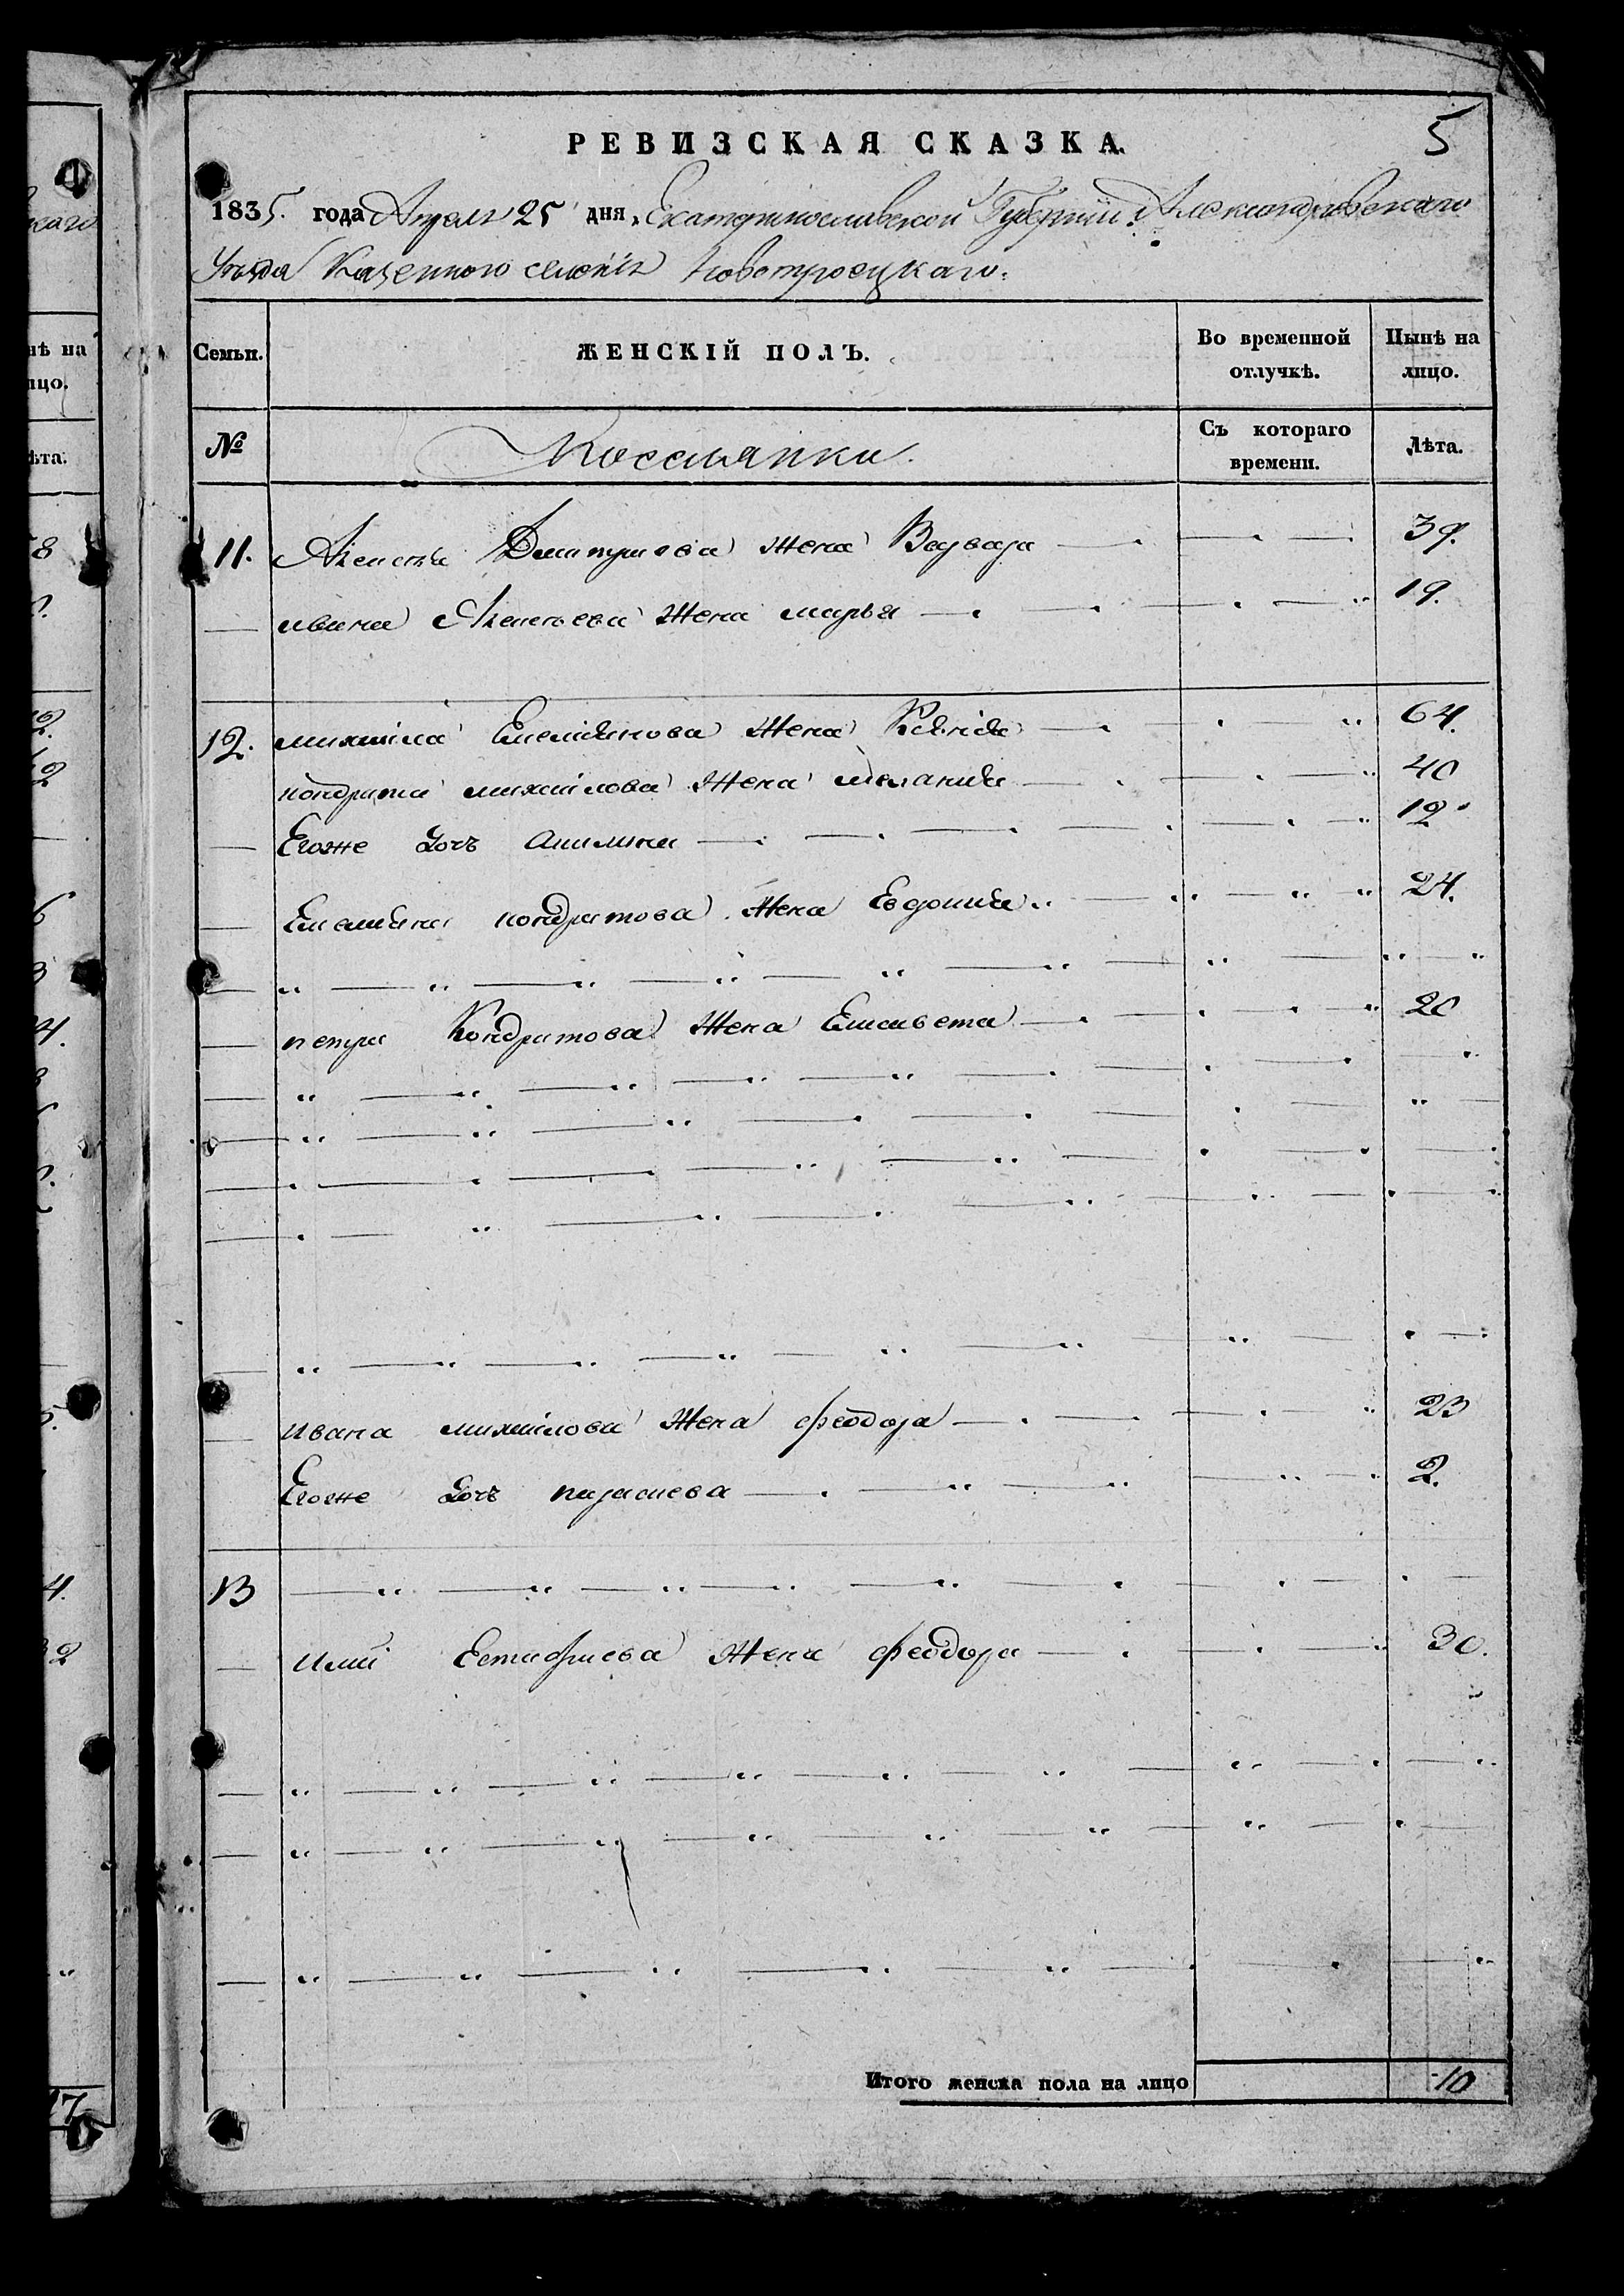 5
РЕВИЗСКАЯ СКАЗКА.
1835. года Апреля 25 дня, Екатеринославской Губернии Александровскаго
Уезда Казенного селения Новотроецкаго:
Семьи. ЖЕНСКІЙ ПОЛЪ. Во временной отлучкѣ. Нынѣ на лицо.
№ Поселянки. Съ котораго времени. Лѣта.
11. Дмитриева жена Варвара 39.
ивана жена марья 19.
12. михаила Емельянова жена 64.
кондрата михаилова жена мелания 40
Егоже дочь акилина 12
Емельяна кондратова жена Евдокия 24.
петра Кондратова жена Елисавета 20
ивана михаилова жена феодора 23
Егоже дочь параскева 2.
13
илии Естафиева жена феодора 30.
Итого женска пола на лицо 10